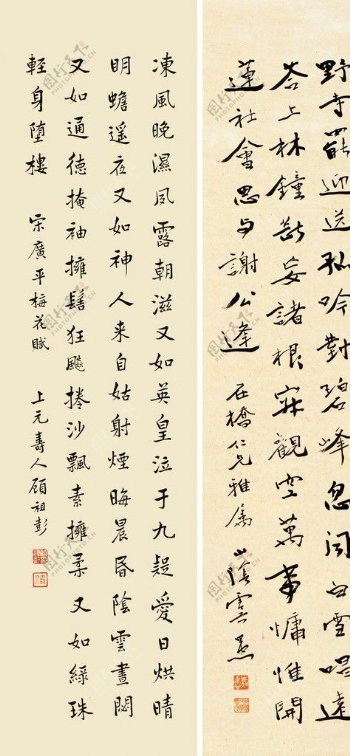 野寺罷迎送孤吟對碧峰忽聞白雪唱遠
答上林鐘斷妄諸根寂觀空萬事慵惟開
蓮社會思與謝公逢
石橋仁兄雅屬
凍風晚濕夙露朝滋又如英皇泣于九疑愛日烘晴
明蟾遥夜又如神人来自姑射煙晦晨昏陰雲晝閟
又如通德掩袖擁髻狂飈捲沙飄素摧柔又如綠珠
輕身墮樓 宗廣平梅花賦 上元壽人顧祖彭